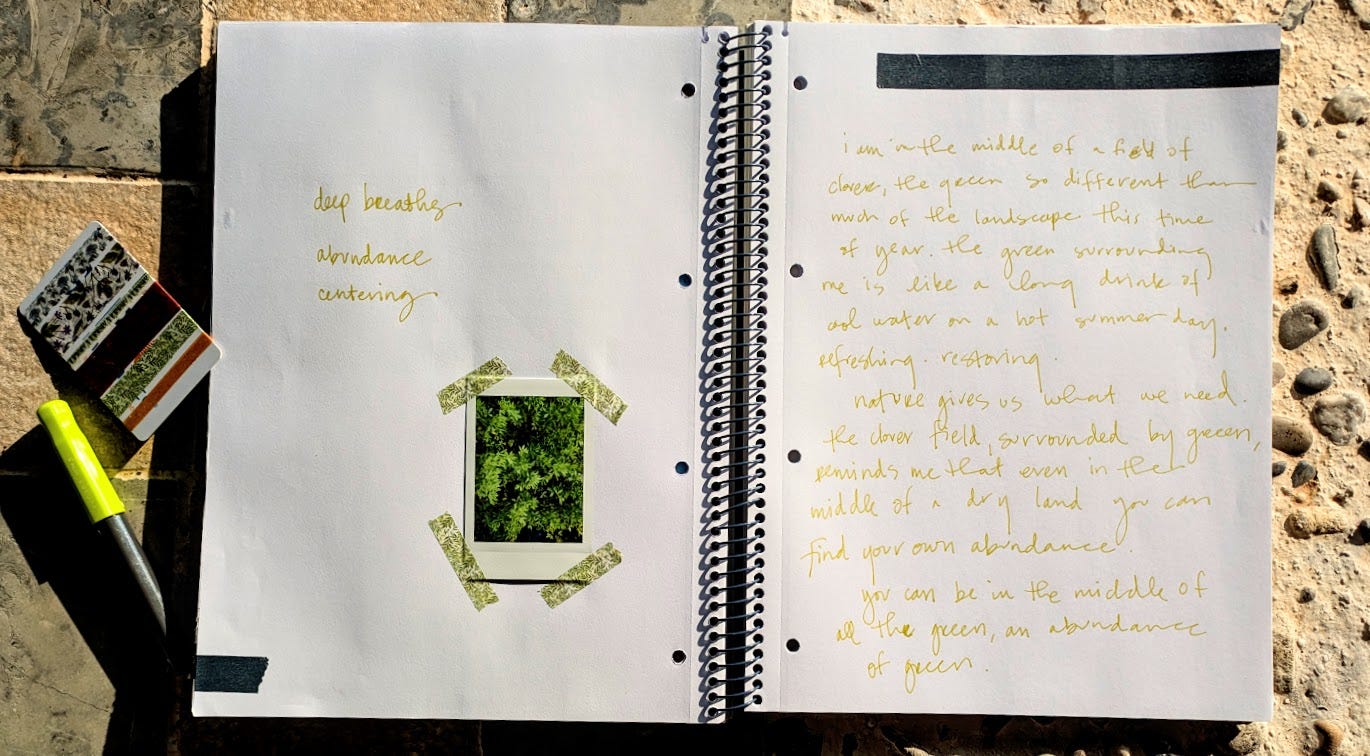 deep breaths
abundance
centering
i am in the middle of a field of
clover, the green so different than
much of the landscape this time
of year. the green surrounding
me is like a long drink of
cool water on a hot summer day.
refreshing. restoring.
nature gives us what we need.
the clover field, surrounded by green,
reminds me that even in the
middle of a dry land you can
find your own abundance.
you can be in the middle of
all the green, an abundance
of green.